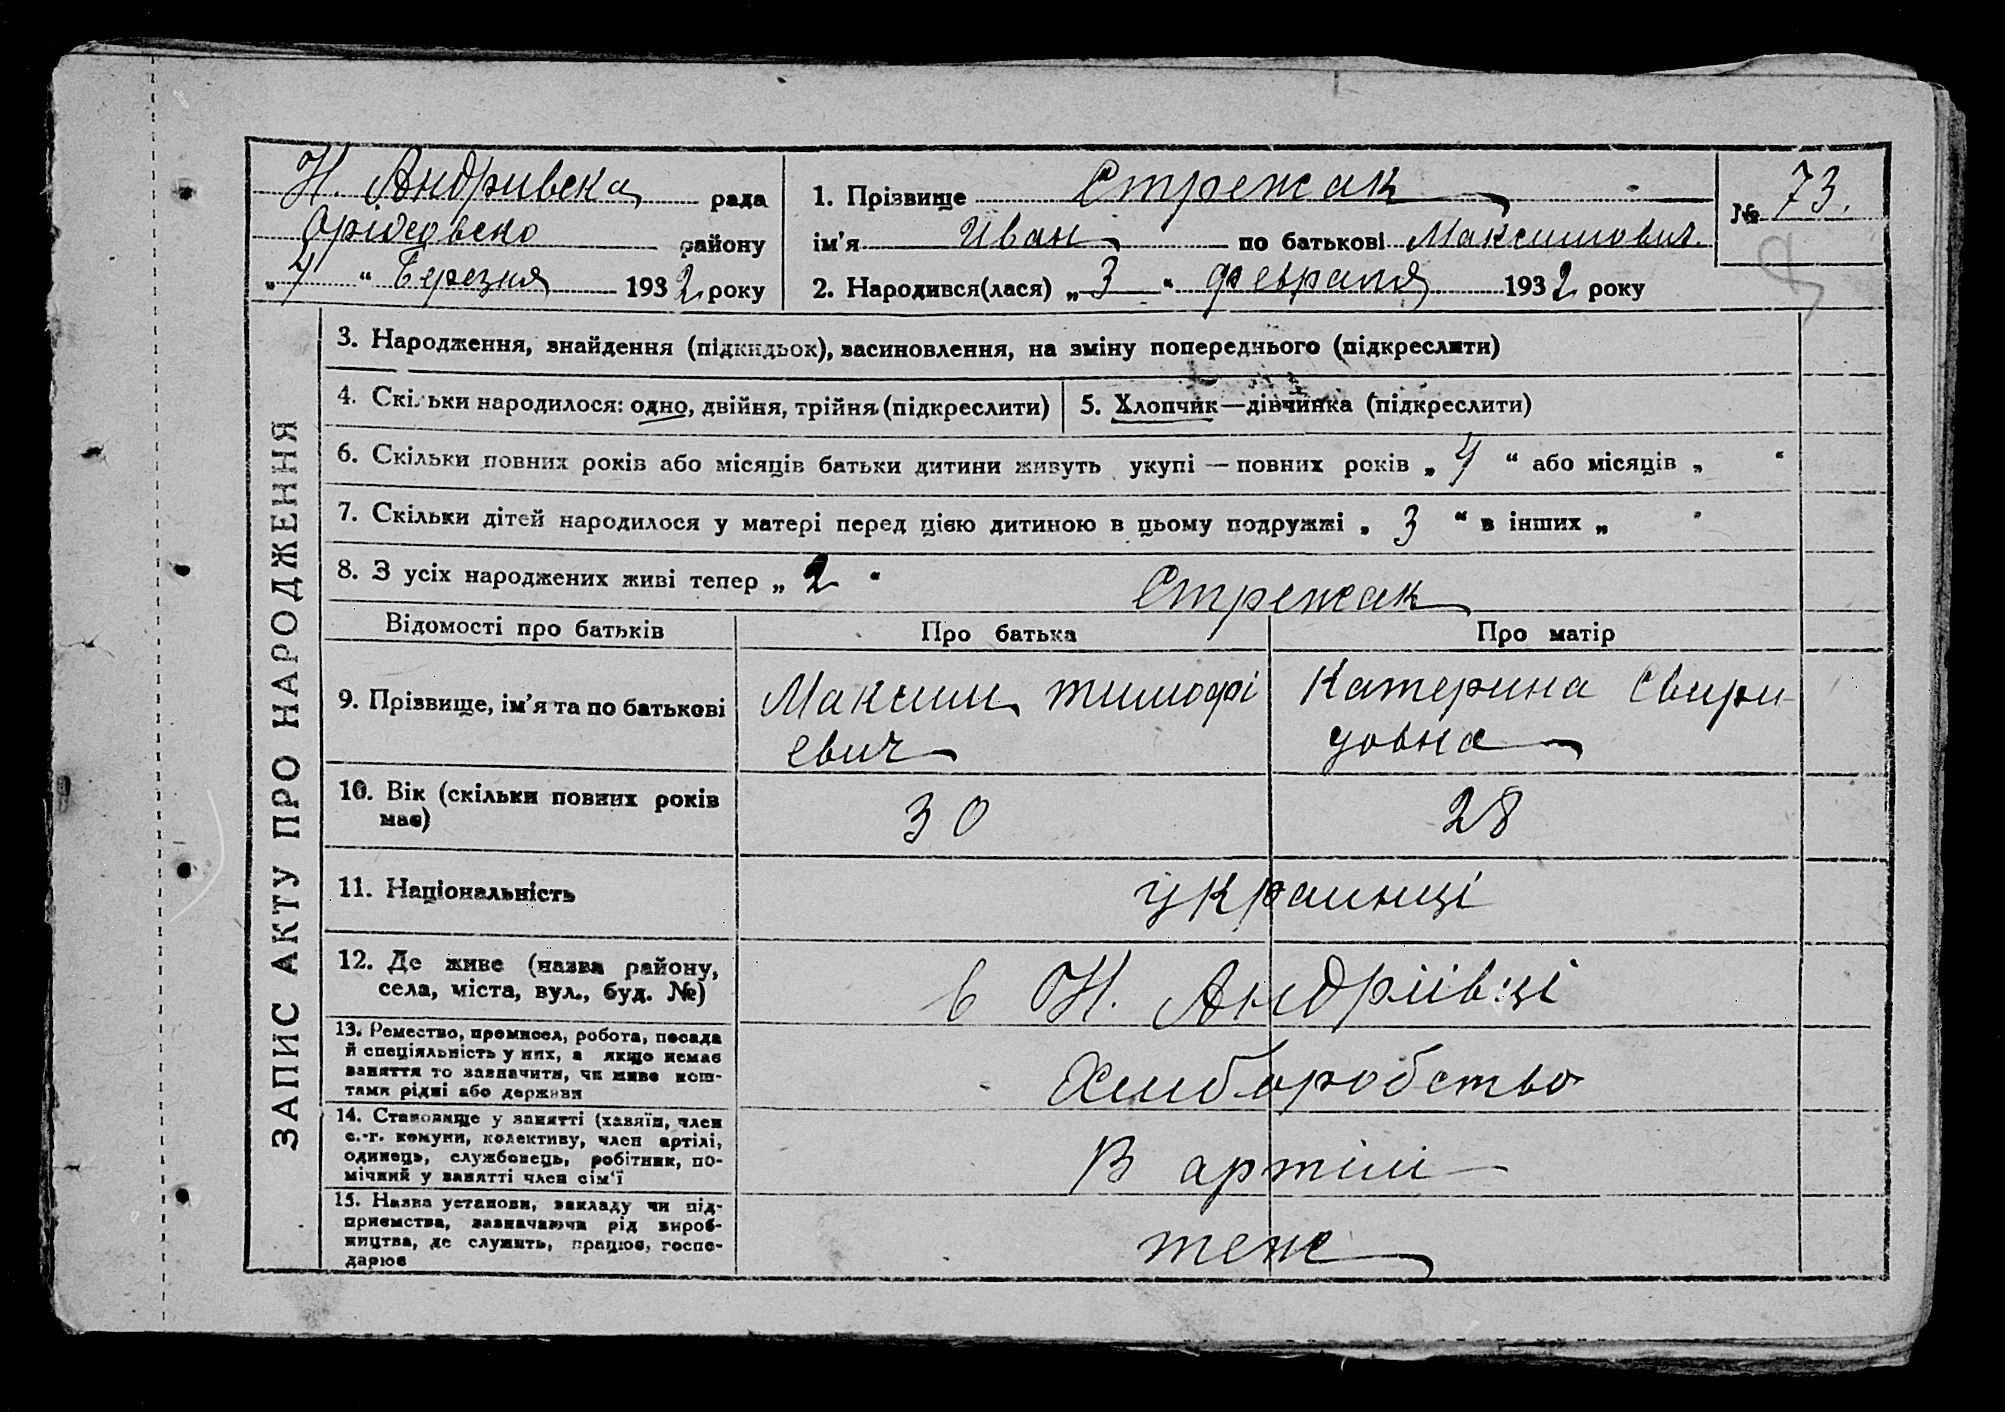 Н. Андривска рада
Оріховско району
„4“ Березня 1932 року
1. Прізвище Стрежак
ім’я Иван по батькові Максимович.
2. Народився(лася) „3“ февраля 1932 року
№ 73.
ЗАПИС АКТУ ПРО НАРОДЖЕННЯ
3. Народження, знайдення (підкидьок), васиновлення, на зміну попереднього (підкреслити)
4. Скільки народилося: одно, двійня, трійня (підкреслити)
5. Хлопчик—дівчинка (підкреслити)
6. Скільки повних років або місяців батьки дитини живуть укупі — повних років „4“ або місяців „ “
7. Скільки дітей народилося у матері перед цією дитиною в цьому подружжі „3“ в інших „ “
8. З усіх народжених живі тепер „2“
Стрежак
Відомості про батьків
Про батька
Про матір
9. Прізвище, ім’я та по батькові
Максим тимофі
евич
Катерина Свири-
довна
10. Вік (скільки повних років
має)
30
28
11. Національність
украинці
12. Де живе (назва району,
села, міста, вул., буд. №)
в Н. Андріівці
13. Ремество, промисел, робота, посада
й спеціяльність у них, а якщо немає
ваняття то зазначити, чи живе кош-
тами рідні або держави
Хлиборобство
14. Становище у занятті (хазяїн, член
с.-г. комуни, колективу, член артілі,
одинець, службовець, робітник, по-
мічний у занятті член сім’ї
В артілі
15. Назва установи, закладу чи під-
приємства, зазначаючи рід вироб-
ництва, де служить, працює, госпо-
дарює
теж